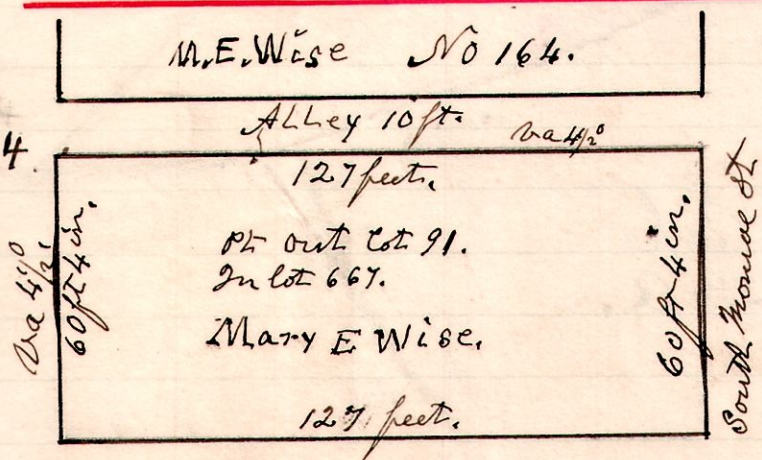 M.E. Wise No 164.
Alley 10 ft.
Va 4½°
4
127 feet.
Va 4½°
60 ft 4 in.
Pt out lot 91.
In lot 667.
Mary E Wise.
60 ft 4 in.
South Monroe St
127 feet.